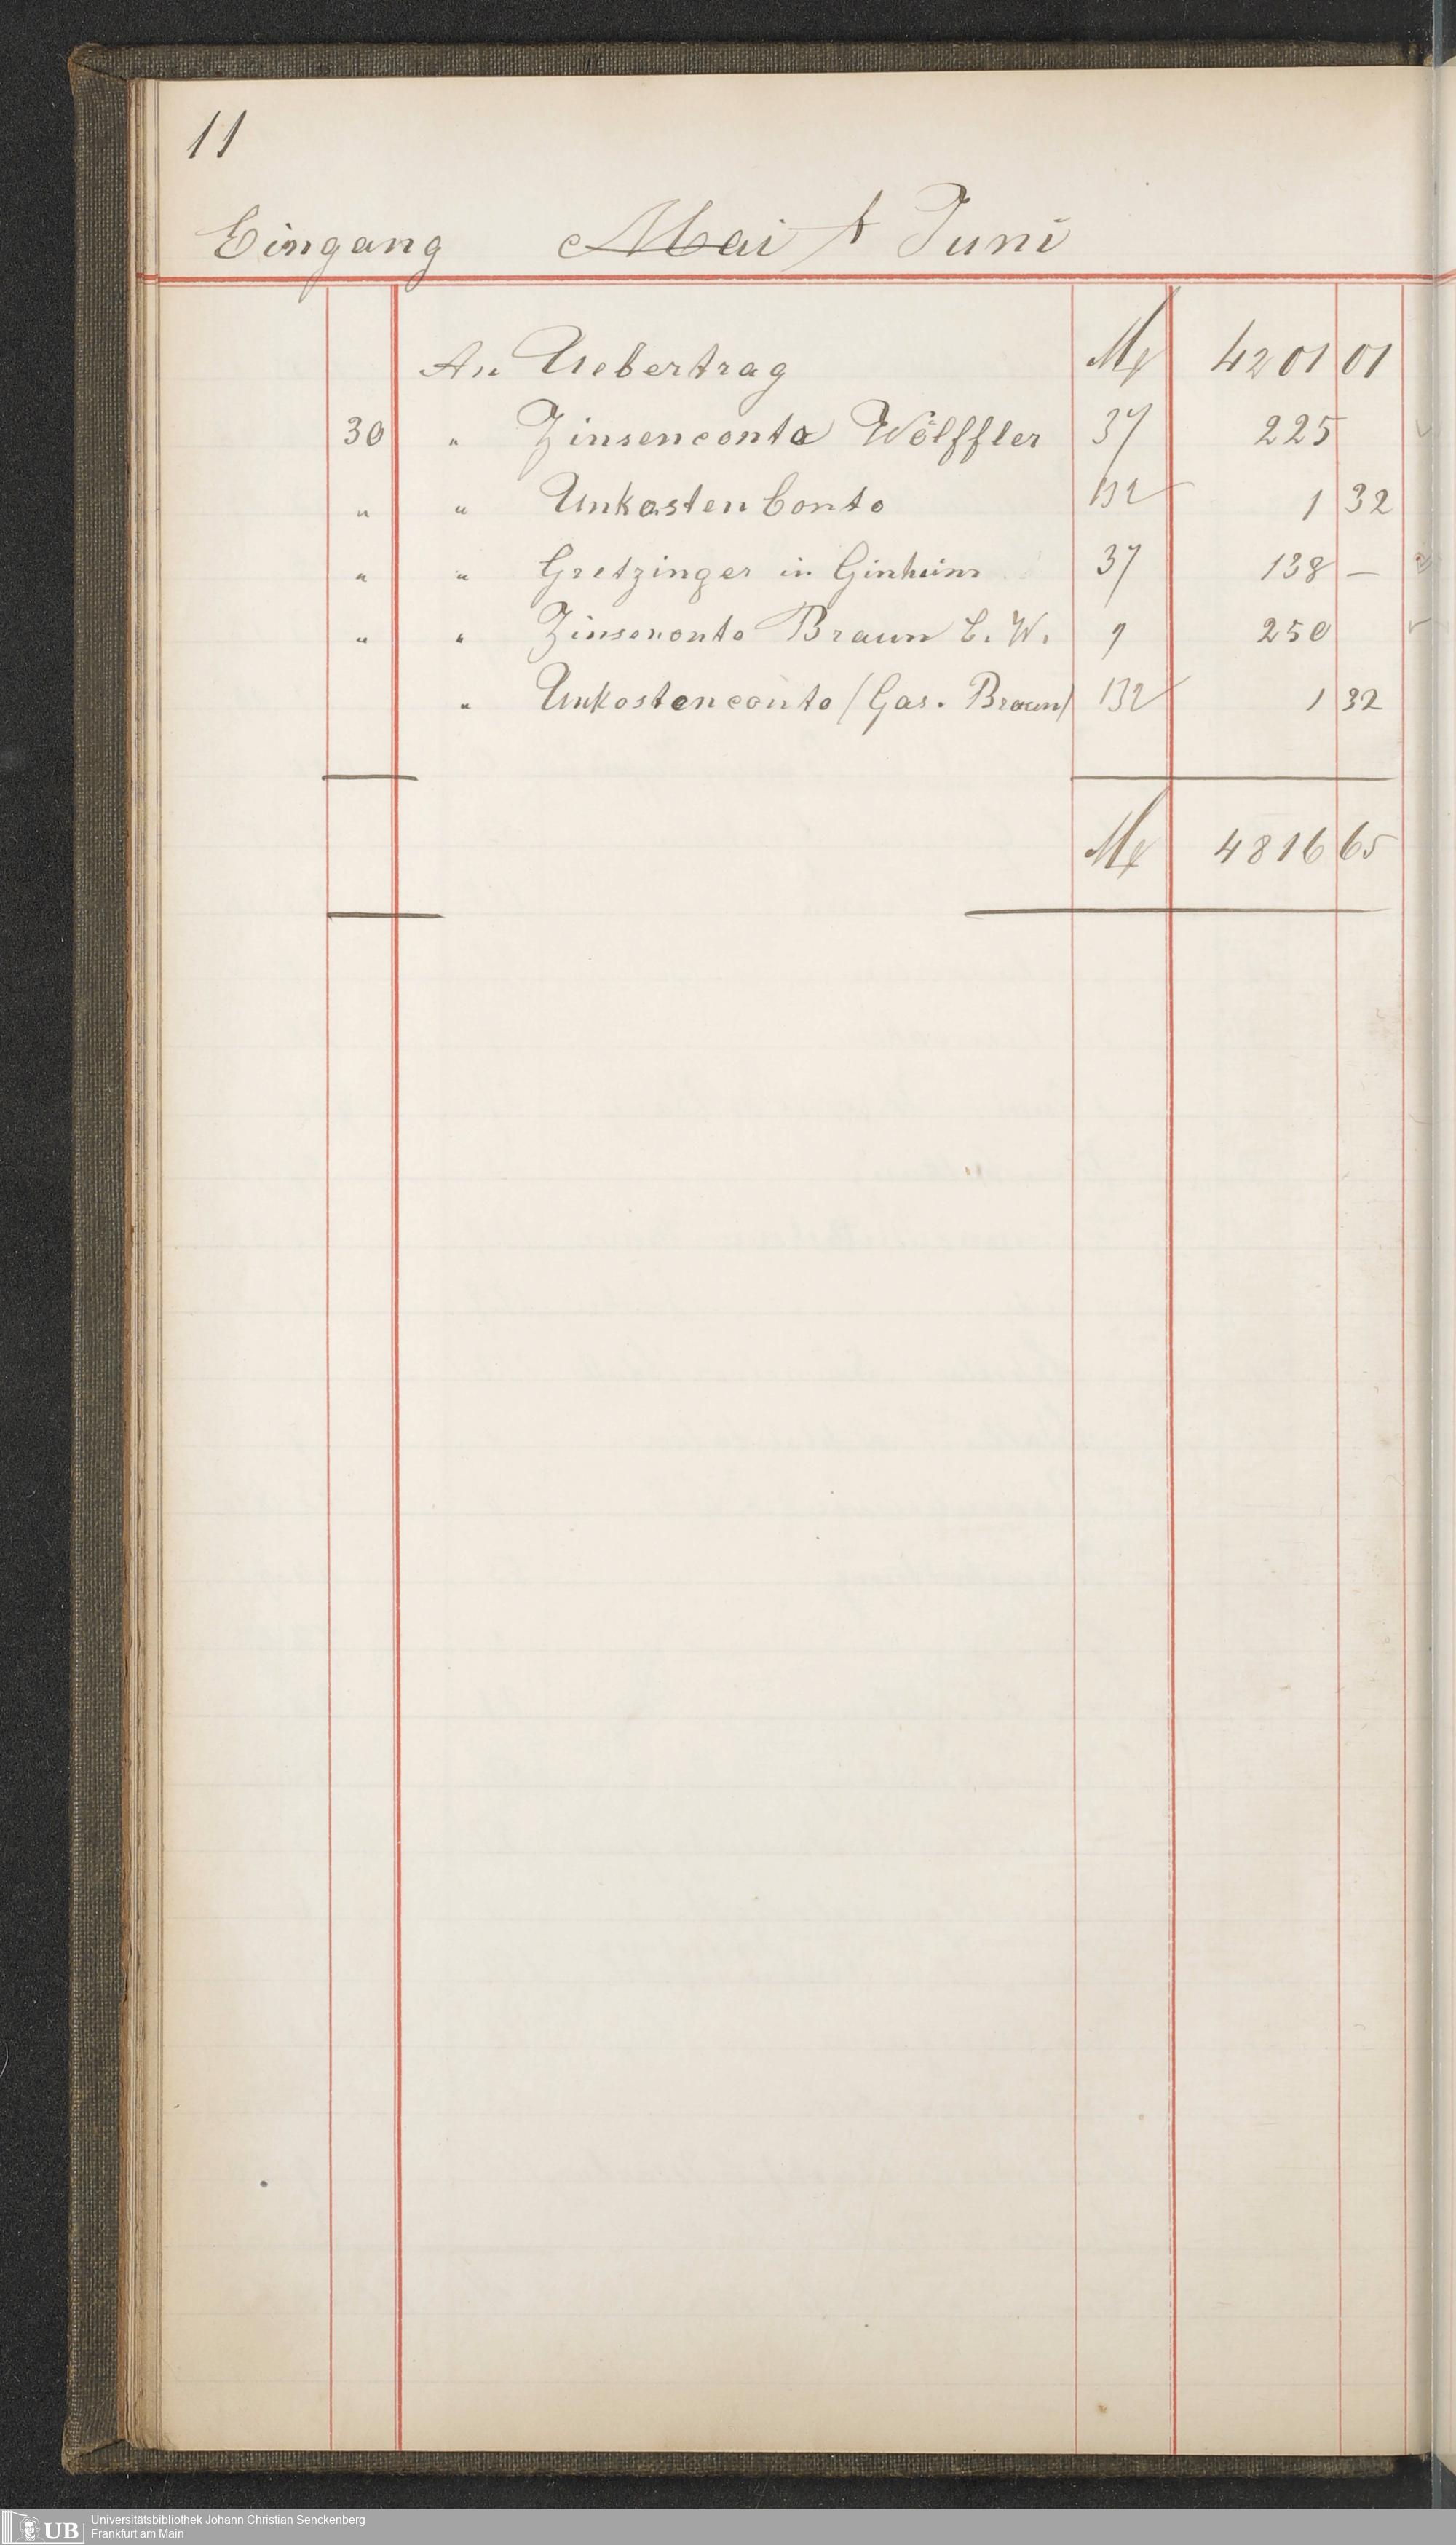 11
Eingang Mai & Juni
An Uebertrag M 4201 01
30 " Zinsenconto Wölffler 37 225
" " Unkosten Conto 132 1 32
" " Gretzinger in Ginheim 37 138 —
" " Zinsenonto Braun C. W. 9 250
" Unkostenconto (Gas. Braun) 132 1 32
M 4816 65
Universitätsbibliothek Johann Christian Senckenberg
UB Frankfurt am Main